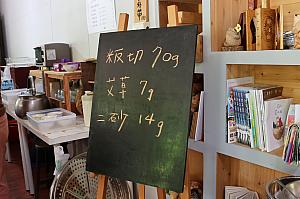 板切 70g
艾草 7g
二砂 14g